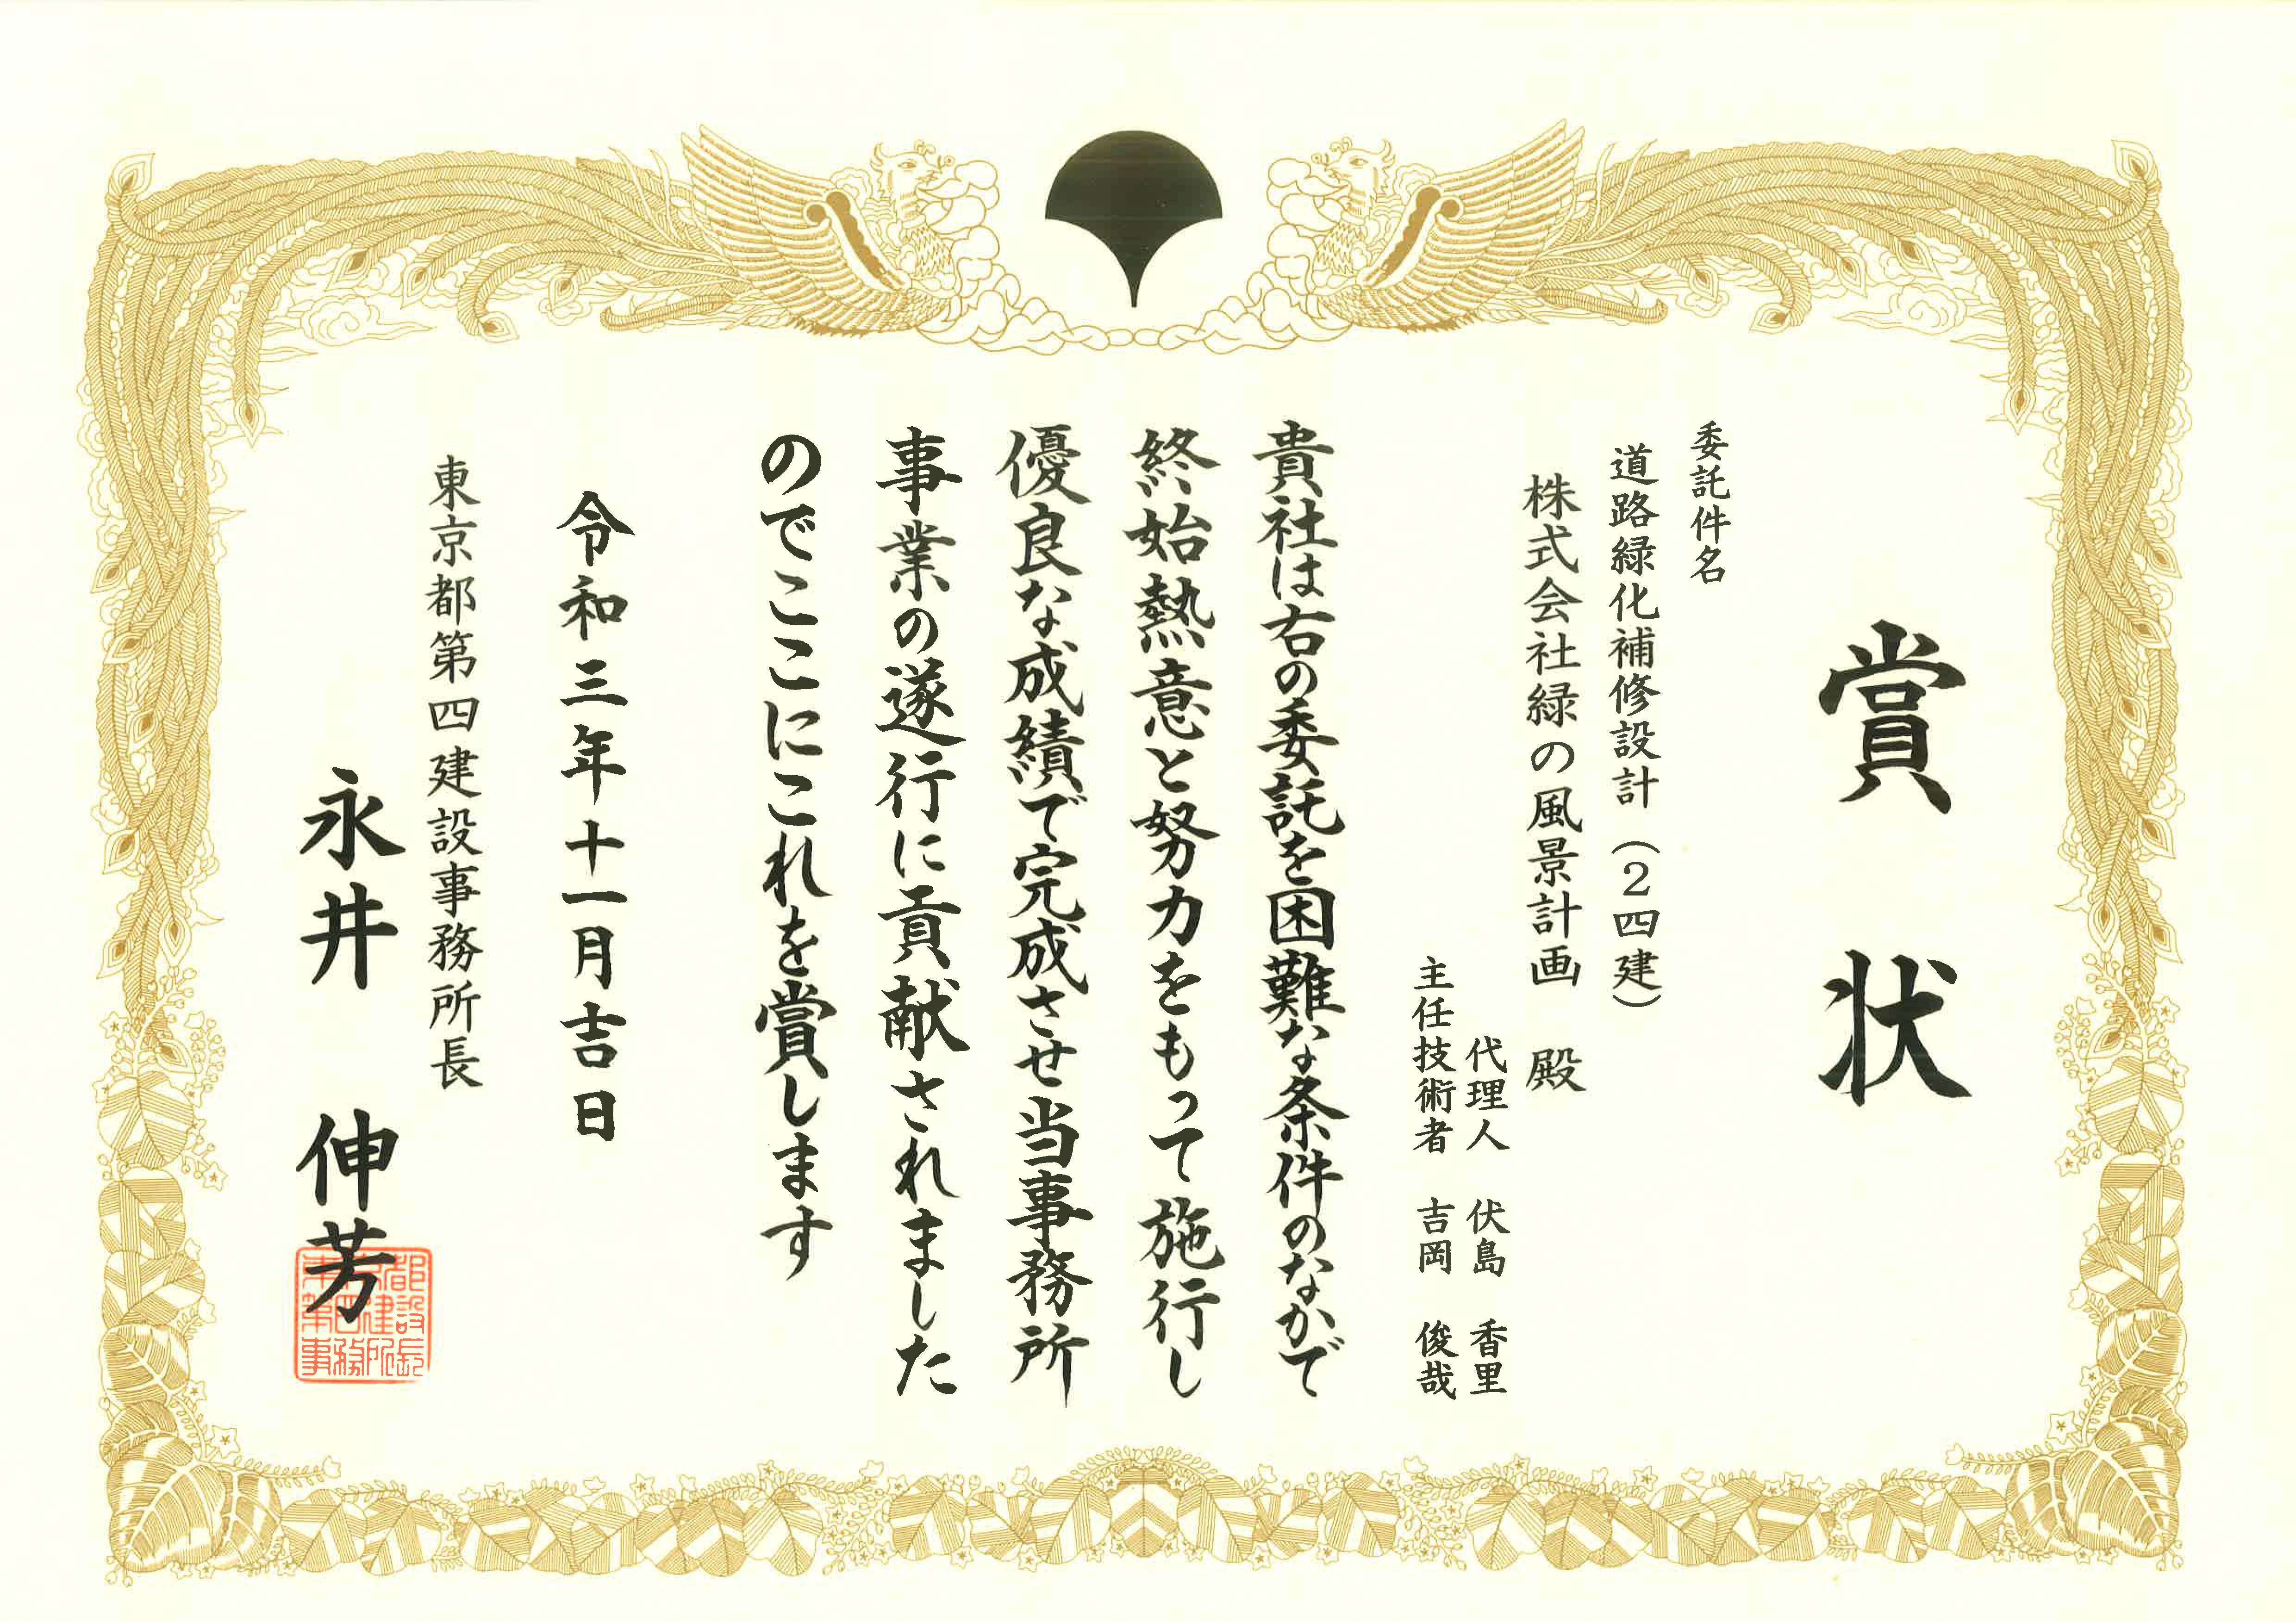 賞状
委託件名
道路緑化補修設計（２四建）
株式会社緑の風景計画　殿
代理人　伏島　香里
主任技術者　吉岡　俊哉
貴社は右の委託を困難な条件のなかで
終始熱意と努力をもって施行し
優良な成績で完成させ当事務所
事業の遂行に貢献されました
のでここにこれを賞します
令和三年十一月吉日
東京都第四建設事務所長
永井　伸芳
東京都
第四建設
事務所長